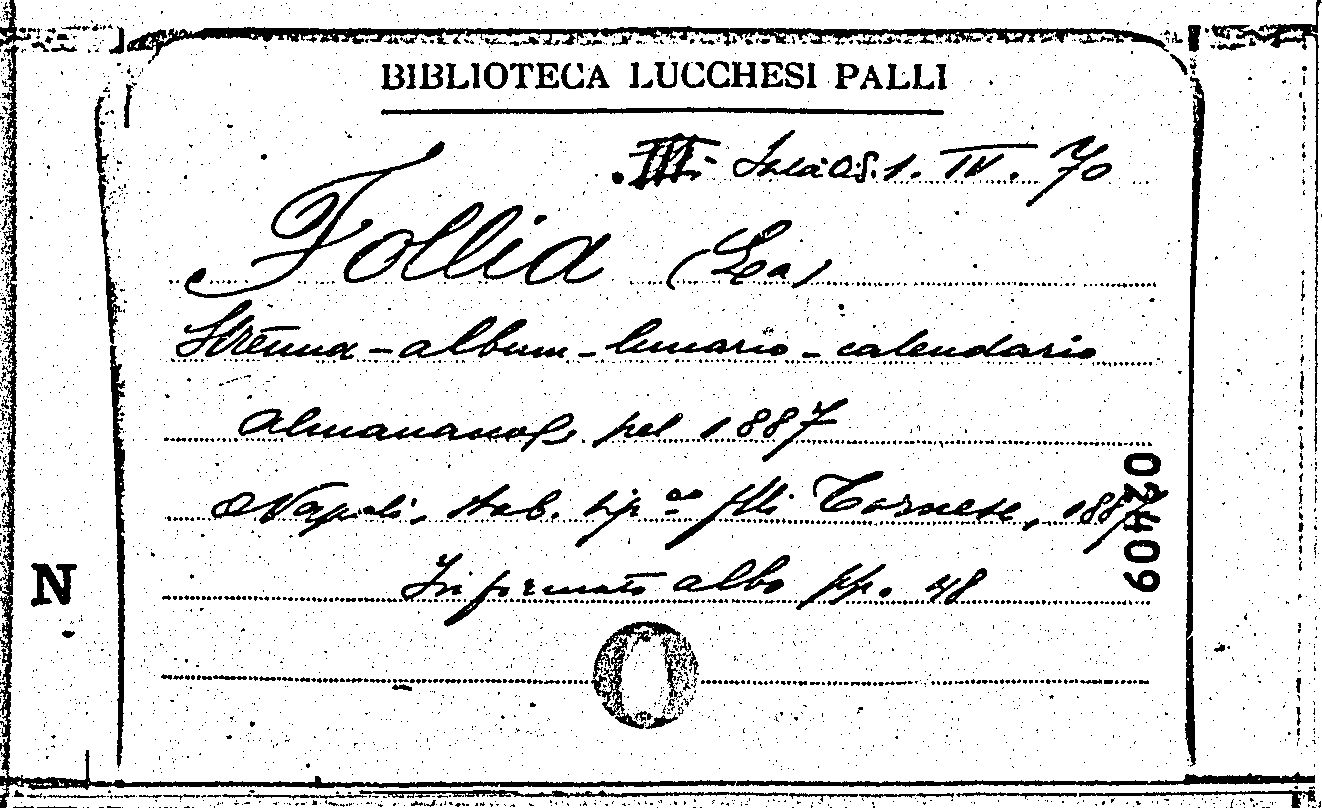 BIBLIOTECA LUCCHESI PALLI
Sala 1. IV. 70
Follia (La)
Strenna - album - lunario - calendario
almanacco pel 1887
Napoli, stab. tip.co f.lli Tornese, 1887
In formato albo pp. 48
02409
N